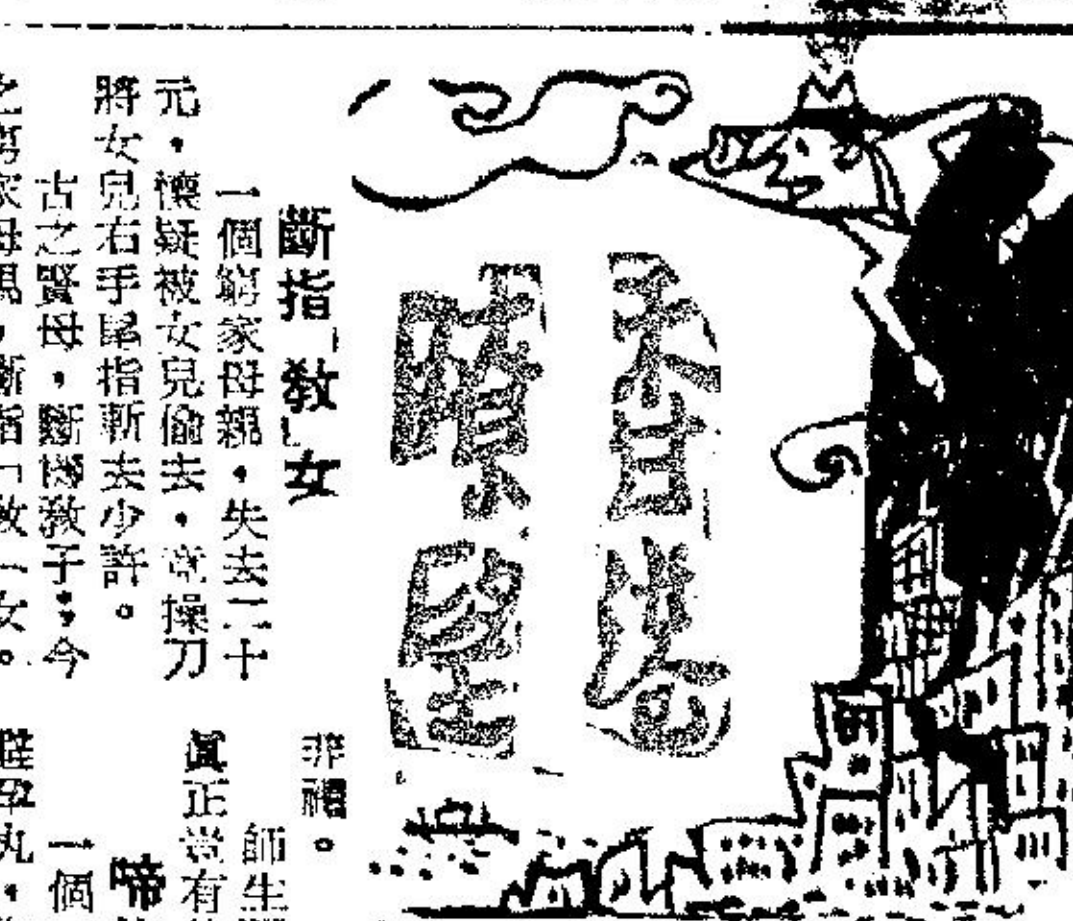 香港
瞭望
斷指「教」女
一個窮家母親,失去二十
元,懷疑被女兒偷去,竟操刀
將女兒右手尾指斬去少許。
古之賢母,斷機教子;今
之窮家母,斷指「教」女。
非禮。
師生
眞正有
啼
一個
避孕丸,